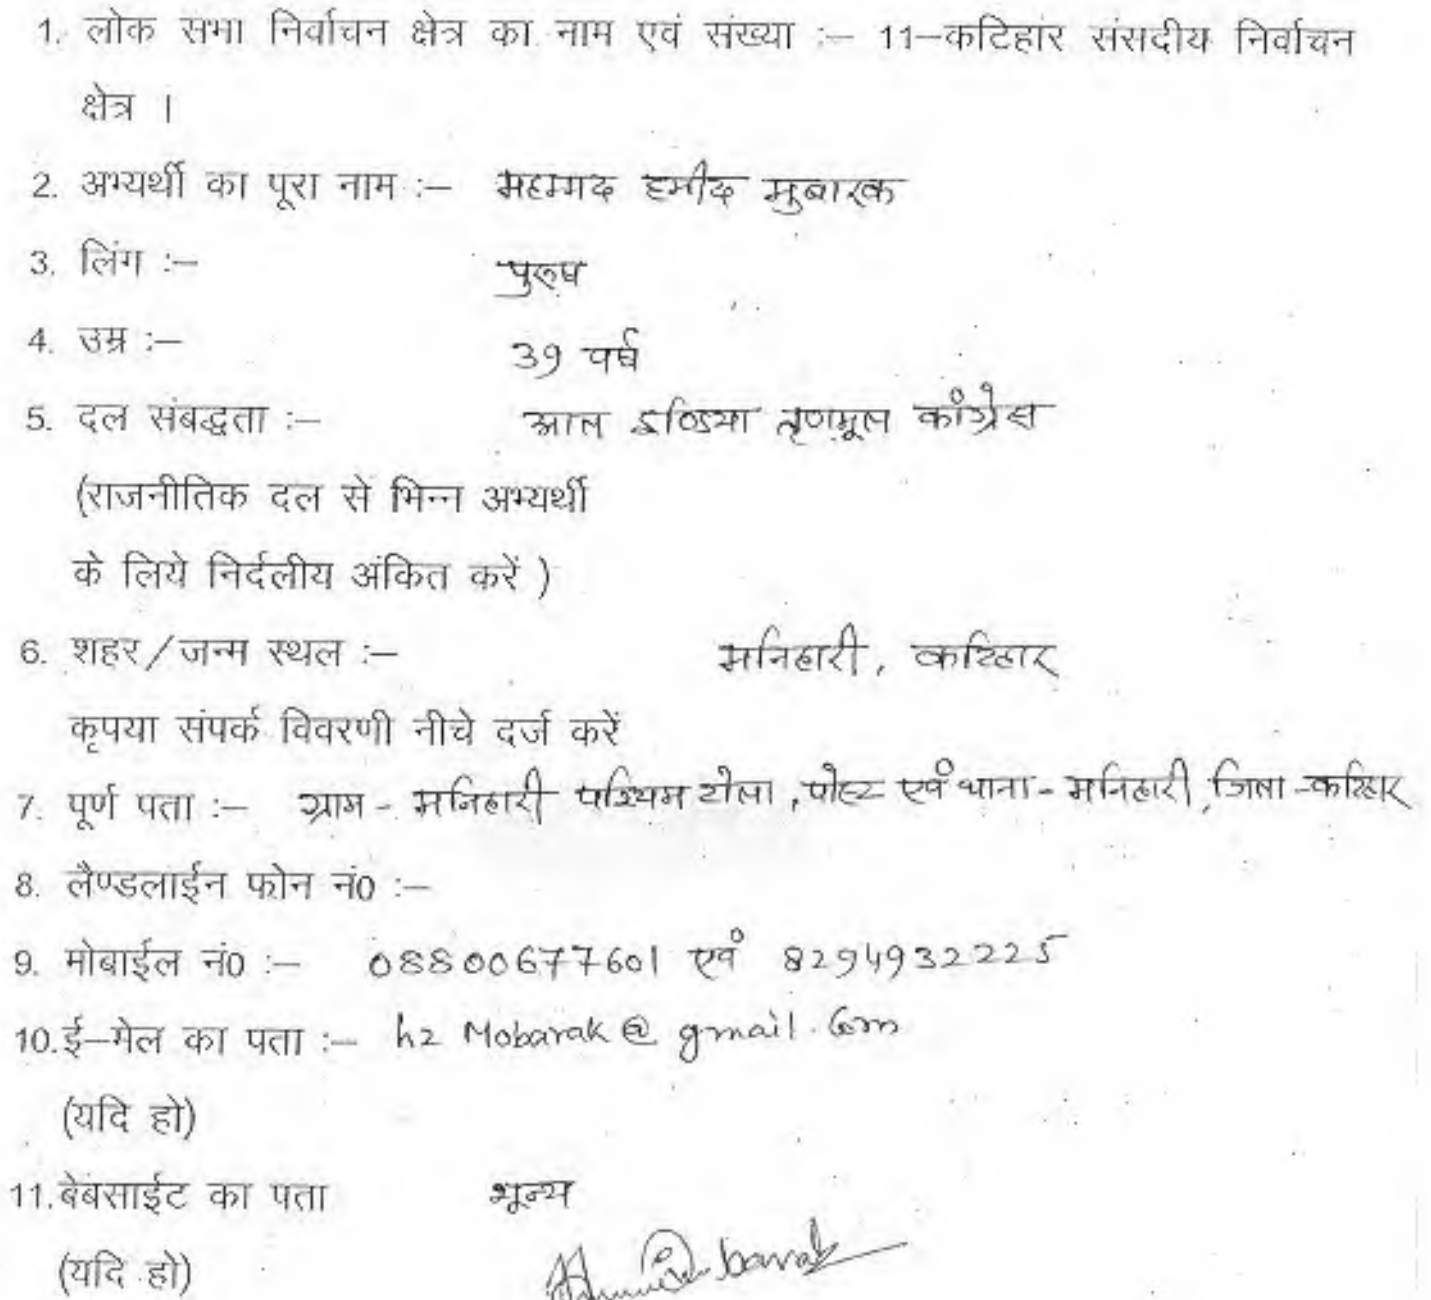 1. लोक सभा निर्वाचन क्षेत्र का नाम एवं संख्या :– 11–कटिहार संसदीय निर्वाचन
क्षेत्र ।
2. अभ्यर्थी का पूरा नाम :– महम्मद हमीद मुबारक
3. लिंग :– पुरूष
4. उम्र :– 39 वर्ष
5. दल संबद्धता :– आल इण्डिया तृणमूल काँग्रेस
(राजनीतिक दल से भिन्न अभ्यर्थी
के लिये निर्दलीय अंकित करें )
6. शहर/जन्म स्थल :– मनिहारी, कटिहार
कृपया संपर्क विवरणी नीचे दर्ज करें
7. पूर्ण पता :– ग्राम - मनिहारी पश्चिम टोला, पोस्ट एवं थाना - मनिहारी, जिला - कटिहार
8. लैण्डलाईन फोन नं0 :–
9. मोबाईल नं0 :– 08800677601 एवं 8294932225
10.ई–मेल का पता :– h2 Mobarak@gmail.Com
(यदि हो)
11.बेबसाईट का पता शून्य
(यदि हो)